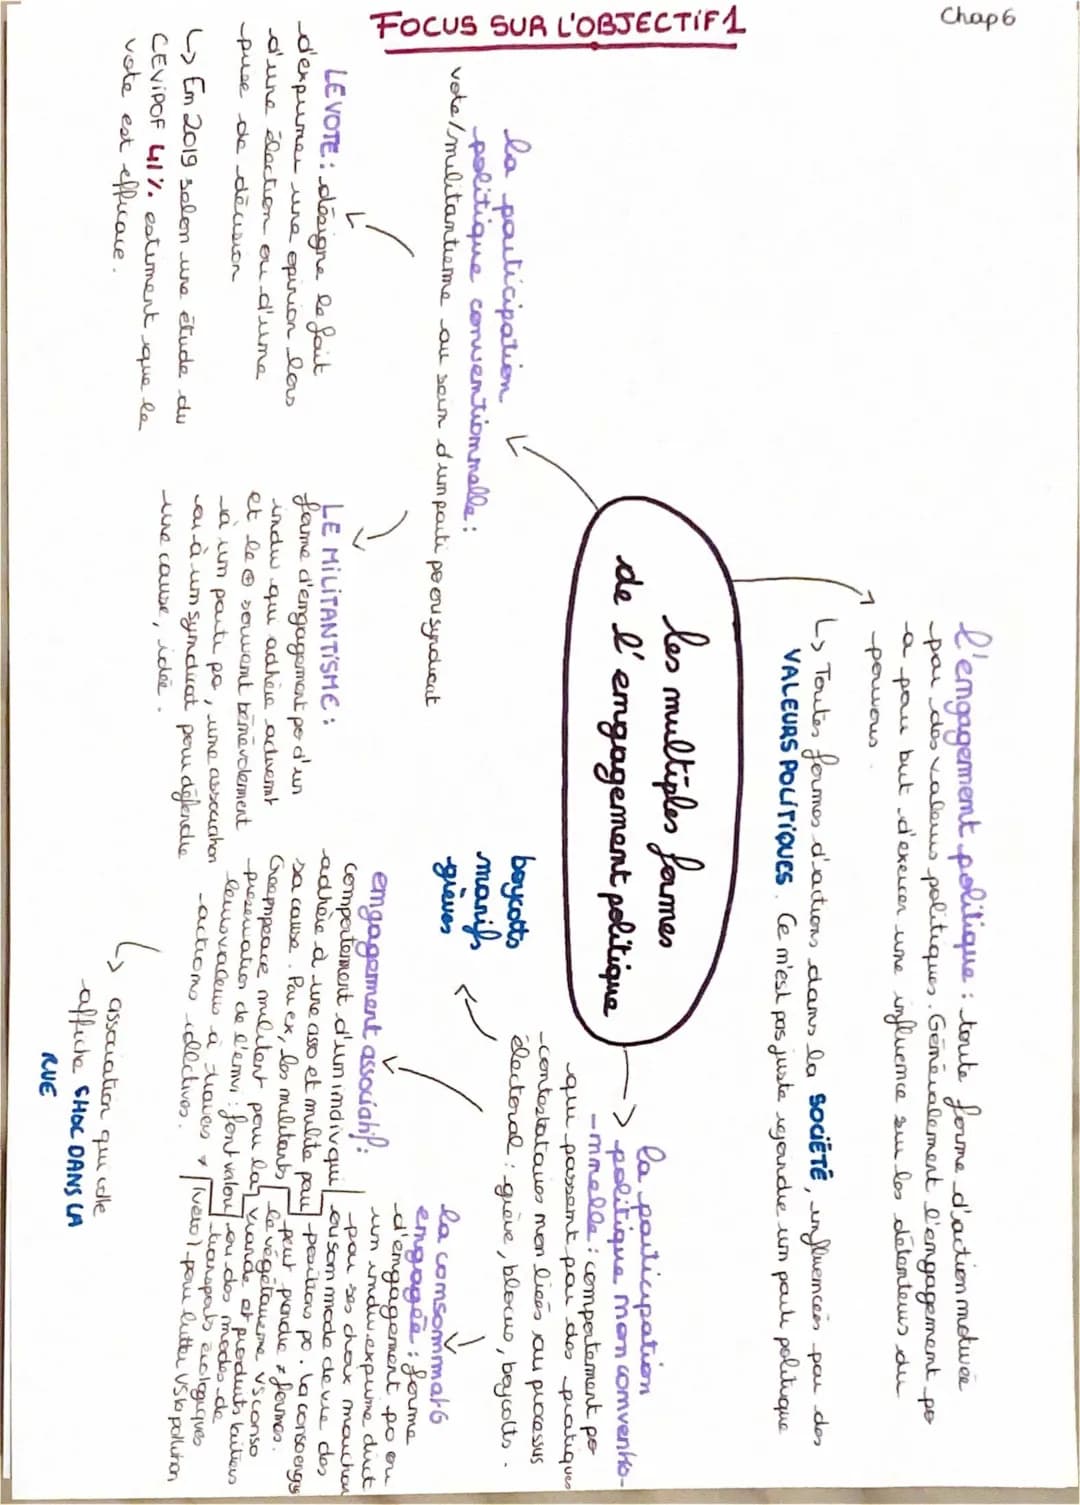 Chap 6
FOCUS SUR L'OBJECTIF 1
l'engagement politique : toute forme d'action motivée
par des valeurs politiques. Généralement l'engagement po
a pour but d'exercer une influence sur les détenteurs du
pouvoir.
↳ Toutes formes d'actions dans la SOCIÉTÉ, influencées par des
VALEURS POLITIQUES. Ce n'est pas juste rejoindre un parti politique
les multiples formes
de l'engagement politique
la participation
politique conventionnelle :
vote/militantisme au sein d'un parti po ou syndicat
LE VOTE : désigne le fait
d'exprimer une opinion lors
d'une élection ou d'une
prise de décision
↳ En 2019 selon une étude du
CEVIPOF 41% estiment que le
vote est efficace.
LE MILITANTISME :
forme d'engagement po d'un
indiv qui adhère activemt
et le ⊕ souvent bénévolement
à un parti po, une association
ou à un syndicat pour défendre
une cause, idée.
la participation
politique non conventio-
-nnelle : comportement po
qui passent par des pratiques
contestataires non liées au processus
électoral : grève, blocus, boycotts.
boycotts
manifs
grèves
engagement associatif :
comportement d'un indiv qui
adhère à une asso et milite pour
sa cause. Par ex, les militants
Greenpeace militent pour la
préservation de l'envi : font valoir
leurs valeurs à travers ≠
actions collectives.
↳ association qui colle
affiche CHOC DANS LA
RUE
la consommatO
engagée : forme
d'engagement po où
un indiv exprime dirct
par ses choix marchan
ou son mode de vie des
positions po. la conso engagé
peut prendre ≠ formes.
le végétarisme VS conso
viande et produits laitiers
ou des modes de
transports écologiques
(vélo) pour lutter VS la pollution